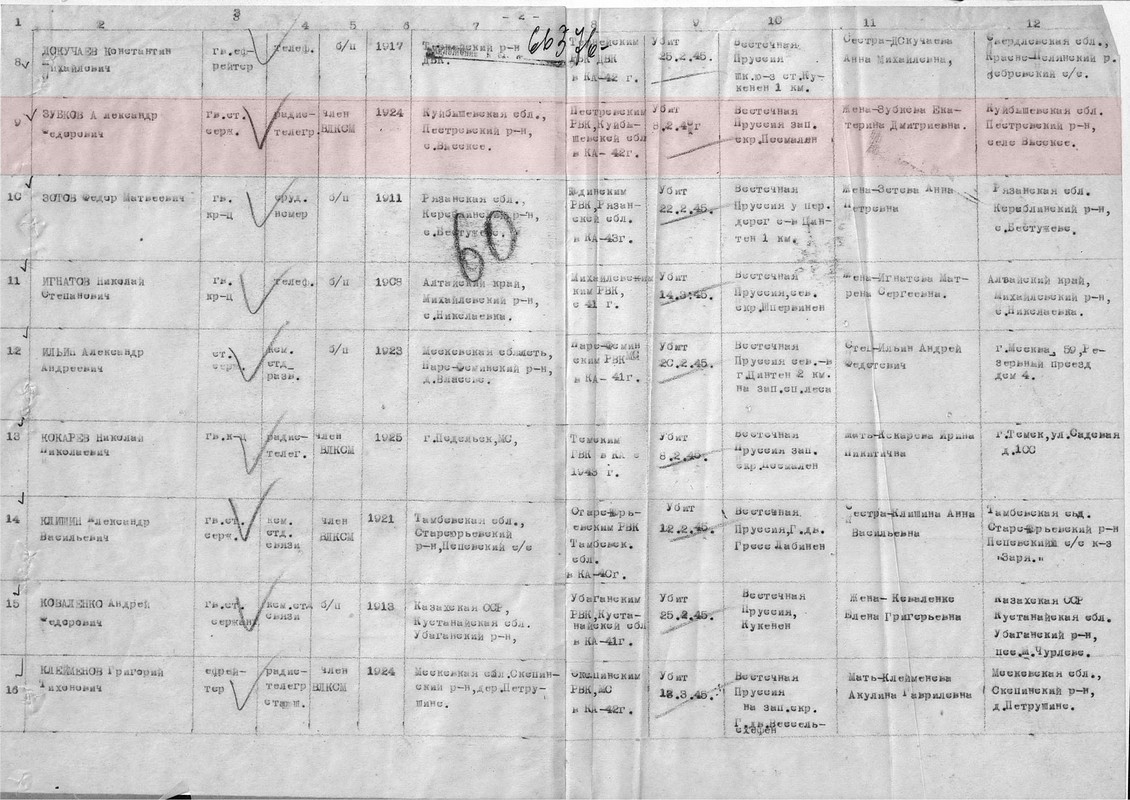 1 2 3 4 5 6 7 - 2 - 8 9 10 11 12
66376
8
ДОКУЧАЕВ Константин
Михайлович
гв.еф-
рейтер
телеф.
б/п
1917
р-н
ДВК.
РВК ДВК
в КА-42 г.
Убит
25.2.45.
Восточная
Пруссия
ж.д-з ст.Ку-
кенен 1 км.
Сестра-Докучаева
Анна Михайловна,
Свердловская обл.,
Красно-Полянский р.
с/с.
9
ЗУБКОВ Александр
Федорович
гв.ст.
серж.
радио-
телегр.
член
ВЛКСМ
1924
Куйбышевская обл.,
Пестровский р-н,
с.Высокое.
Пестровским
РВК,Куйбы-
шевской обл
в КА- 42г.
Убит
8.2.45г
Восточная
Пруссия зап.
окр.Посмален
Жена-Зубкова Ека-
терина Дмитриевна.
Куйбышевская обл.
Пестровский р-н,
село Высокое.
10
ЗОТОВ Федор Матвеевич
гв.
кр-ц
оруд.
номер
б/п
1911
Рязанская обл.,
Кораблинский р-н,
с.Бестужево.
60
РВК,Рязан-
ской обл.
в КА-43г.
Убит
22.2.45.
Восточная
Пруссия у пер.
дорог с-в Цин-
тен 1 км.
Жена-Зотова Анна
Петровна
Рязанская обл.
Кораблинский р-н,
с.Бестужево.
11
ИГНАТОВ Николай
Степанович
гв.
кр-ц
телеф.
б/п
1908
Алтайский край,
Михайловский р-н,
с.Николаевка.
Михайловским
РВК,
с 41 г.
Убит
14.3.45.
Восточная
Пруссия,сев.
окр.Шпервинен
Жена-Игнатова Мат-
рена Сергеевна.
Алтайский край,
Михайловский р-н,
с.Николаевка.
12
ИЛЬИН Александр
Андреевич
ст.
серж.
ком.
отд.
разв.
б/п
1923
Московская область,
Наро-Фоминский р-н,
д.Власово.
Наро-Фомин
ским РВК МО
в КА- 41г.
Убит
20.2.45.
Восточная
Пруссия сев.-в
г.Цинтен 2 км.
на зап.оп.леса
Отец-Ильин Андрей
Федотович
г.Москва, 59,Ре-
зервный проезд
дом 4.
13
КОКАРЕВ Николай
Николаевич
гв.к-ц
радио-
телег.
член
ВЛКСМ
1925
г.Подольск,МО,
Томским
ГВК в КА с
1943 г.
Убит
8.2.45.
Восточная
Пруссия зап.
окр.Посмален
Мать-Кокарева Ирина
Никитична
г.Томск,ул.Садовая
д.100
14
КЛИШИН Александр
Васильевич
гв.ст.
серж.
ком.
отд.
связи
член
ВЛКСМ
1921
Тамбовская обл.,
Староюрьевский
р-н,Поповский с/с
Старо-юрь-
евским РВК
Тамбовск.
обл.
в КА-40г.
Убит
12.2.45.
Восточная
Пруссия,Г.дв.
Гросс Лабинен
Сестра-Клишина Анна
Васильевна
Тамбовская обл.
Старо-юрьевский р-н
Поповский с/с к-з
"Заря."
15
КОВАЛЕНКО Андрей
Федорович
гв.ст.
сержант
ком.отд
связи
б/п
1913
Казахская ССР,
Кустанайская обл.
Убаганский р-н,
Убаганским
РВК,Куста-
найской обл
в КА-41г.
Убит
25.2.45.
Восточная
Пруссия,
Кукенен
Жена- Коваленко
Елена Григорьевна
Казахская ССР
Кустанайская обл.
Убаганский р-н,
пос.ж.Чурлово.
16
КЛЕЙМЕНОВ Григорий
Тихонович
ефрей-
тор
радио-
телегр
старш.
член
ВЛКСМ
1924
Московская обл.Скопин-
ский р-н,дер.Петру-
шино.
Скопинским
РВК,МО
в КА-42г.
Убит
13.3.45.
Восточная
Пруссия
на зап.окр.
Г.дв.Вессель-
схефен
Мать-Клейменова
Акулина Гавриловна
Московская обл.,
Скопинский р-н,
д.Петрушино.